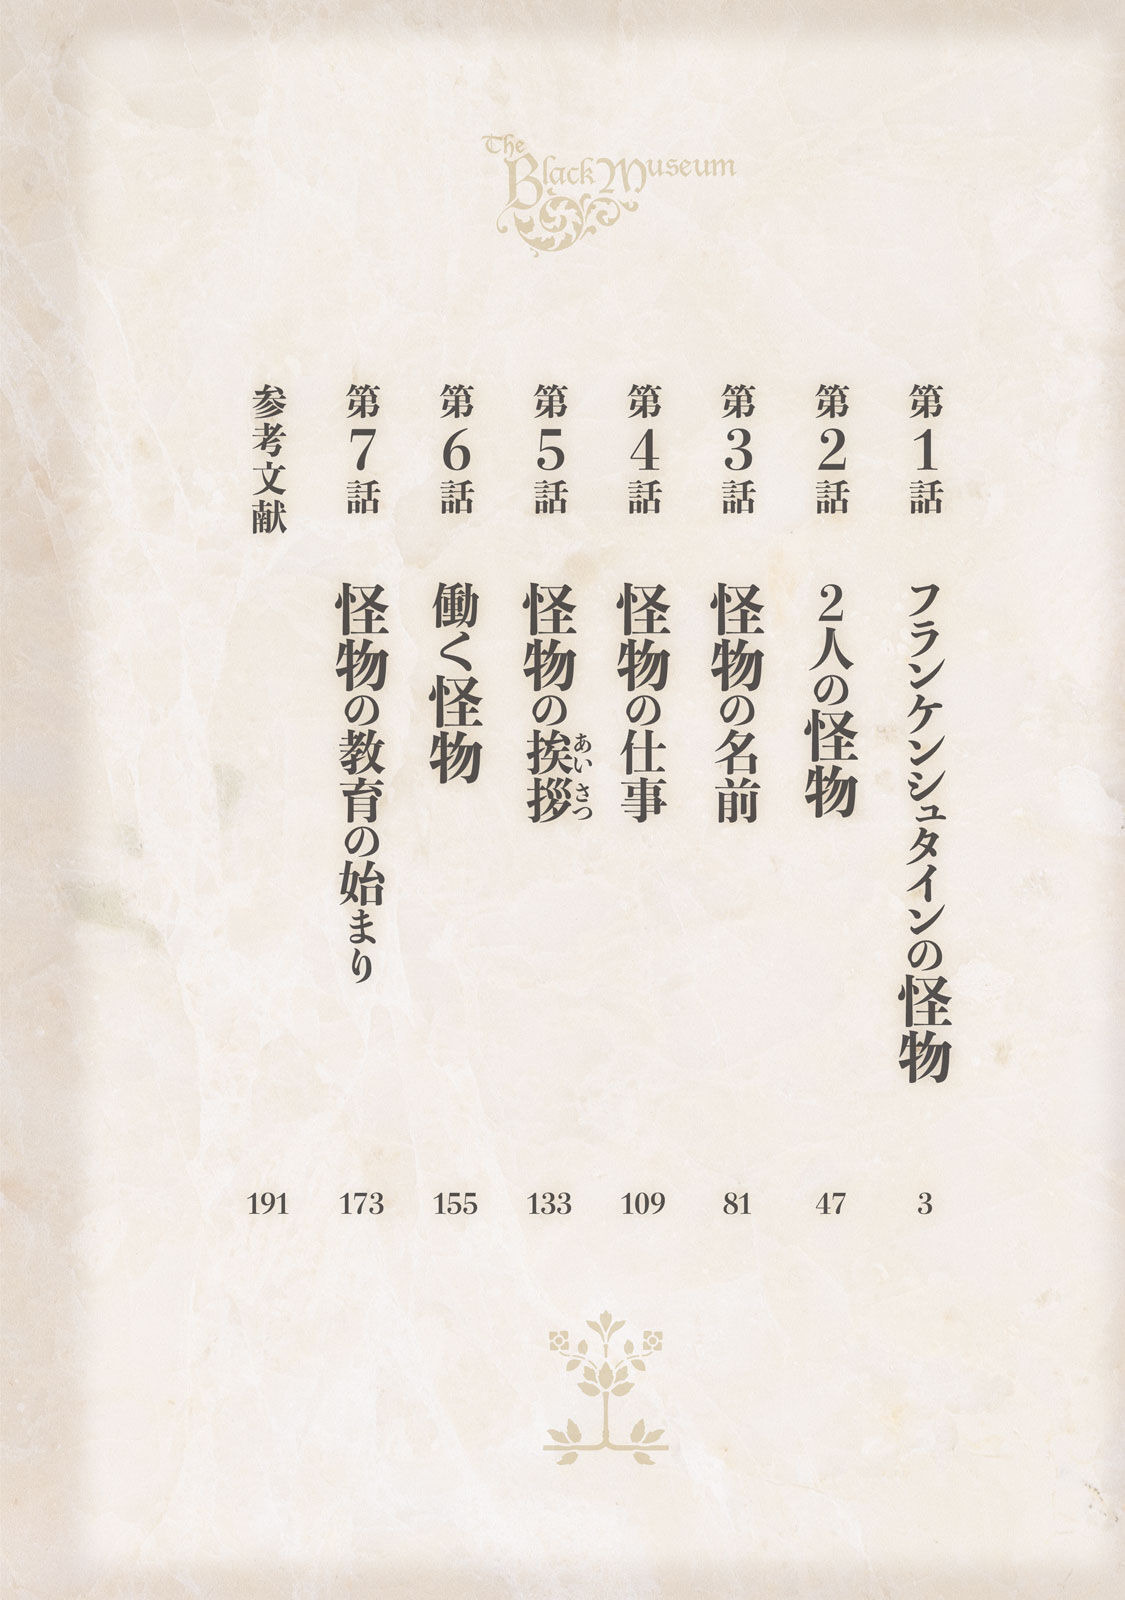 The
Black Museum
第1話 フランケンシュタインの怪物 3
第2話 2人の怪物 47
第3話 怪物の名前 81
第4話 怪物の仕事 109
第5話 怪物の挨拶 133
あいさつ
第6話 働く怪物 155
第7話 怪物の教育の始まり 173
参考文献 191